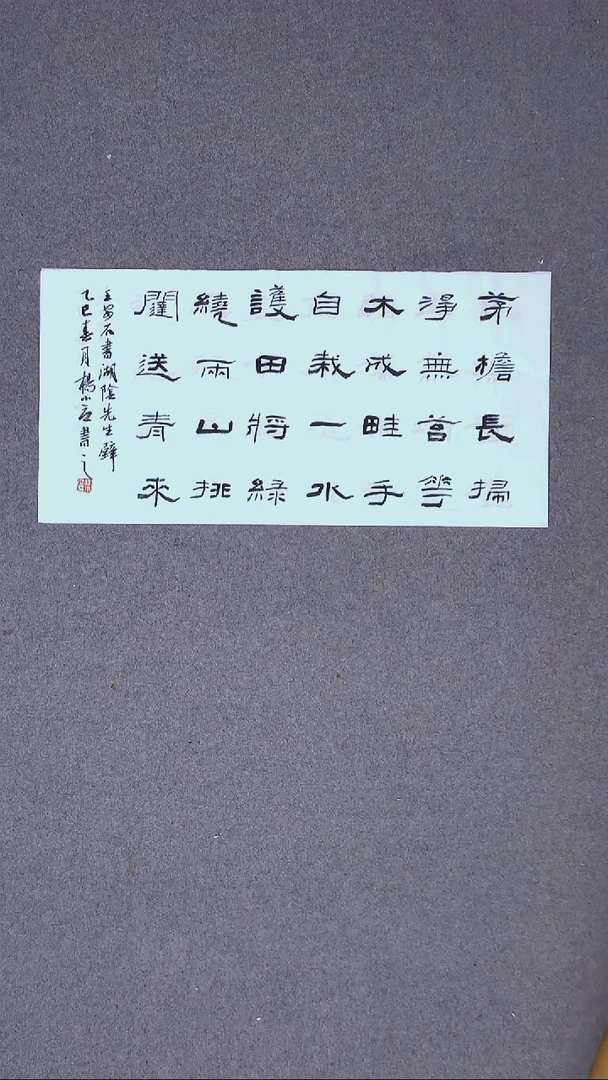 茅檐長掃
淨無苔華
木成畦手
自栽一水
護田將綠
繞兩山排
闥送青來
王安石書湖陰先生壁
乙巳春月楊小書之